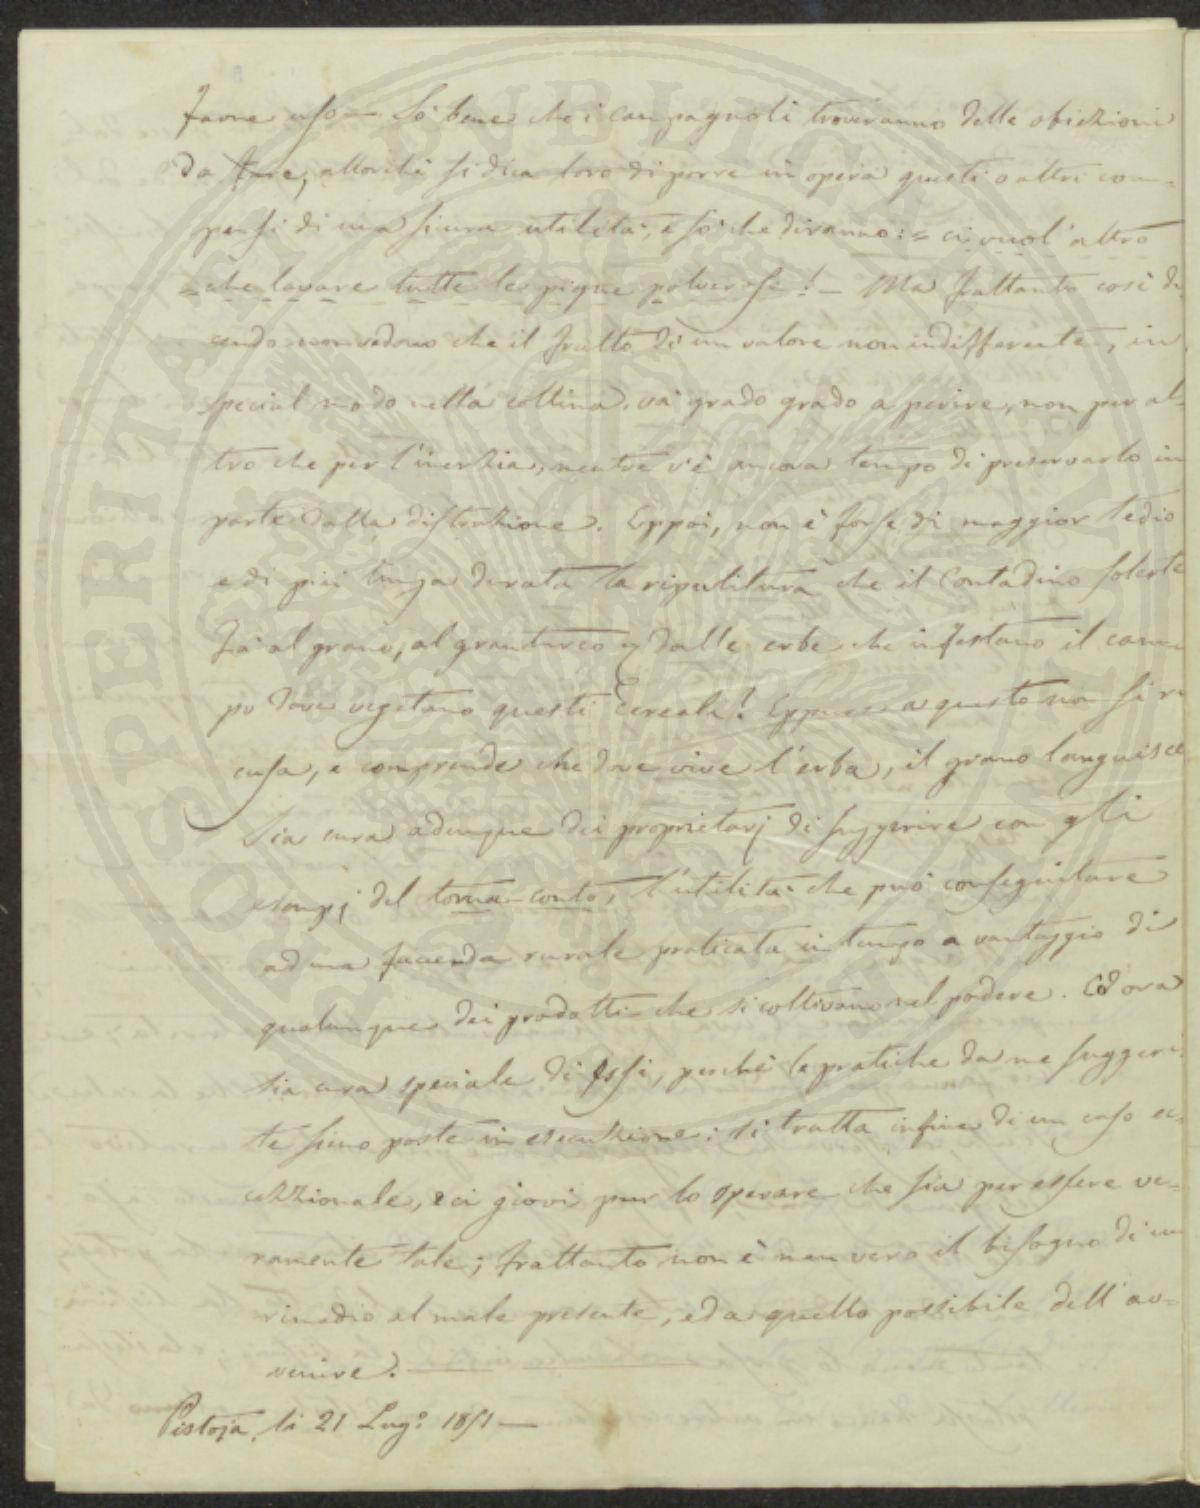 farne uso — Sò bene che i campagnoli troveranno delle obiezioni
da fare, allorchè si dica loro di porre in opera questi o altri com=
pensi di una sicura utilità, e sò che diranno: = ci vuol'altro
= che lavare tutte le pigne polverose! — Ma frattanto così di=
cendo non vedono che il frutto di un valore non indifferente, in
special modo nella collina, và grado grado a perire, non per al=
tro che per l'inerzia, mentre v'è ancora tempo di preservarlo in
parte dalla distruzione. Eppoi, non è forse di maggior tedio
e di più lunga durata la ripulitura che il Contadino solerte
fà al grano, al granturco dalle erbe che infestano il cam=
po dove vegetano questi Cereali! Eppure a questo non si ri
cusa, e comprende che dove vive l'erba, il grano languisce
Sia cura adunque dei proprietarj di suggerire con gli
esempj del torna-conto, l'utilità che può conseguitare
ad una faccenda rurale praticata in tempo a vantaggio di
qualunque dei prodotti che si coltivano nel podere. Ed ora
sia cura speciale di Essi, perchè le pratiche da me suggeri=
te sieno poste in esecuzione; si tratta infine di un caso ec=
cezzionale, e ci giovi pur lo sperare che sia per essere ve=
ramente tale; frattanto non è men vero il bisogno di un
rimedio al male presente, ed a quello possibile dell'av=
venire. —
Pistoja, li 21 Lugº 1851 —
PROSPERITATI PUBLICAE